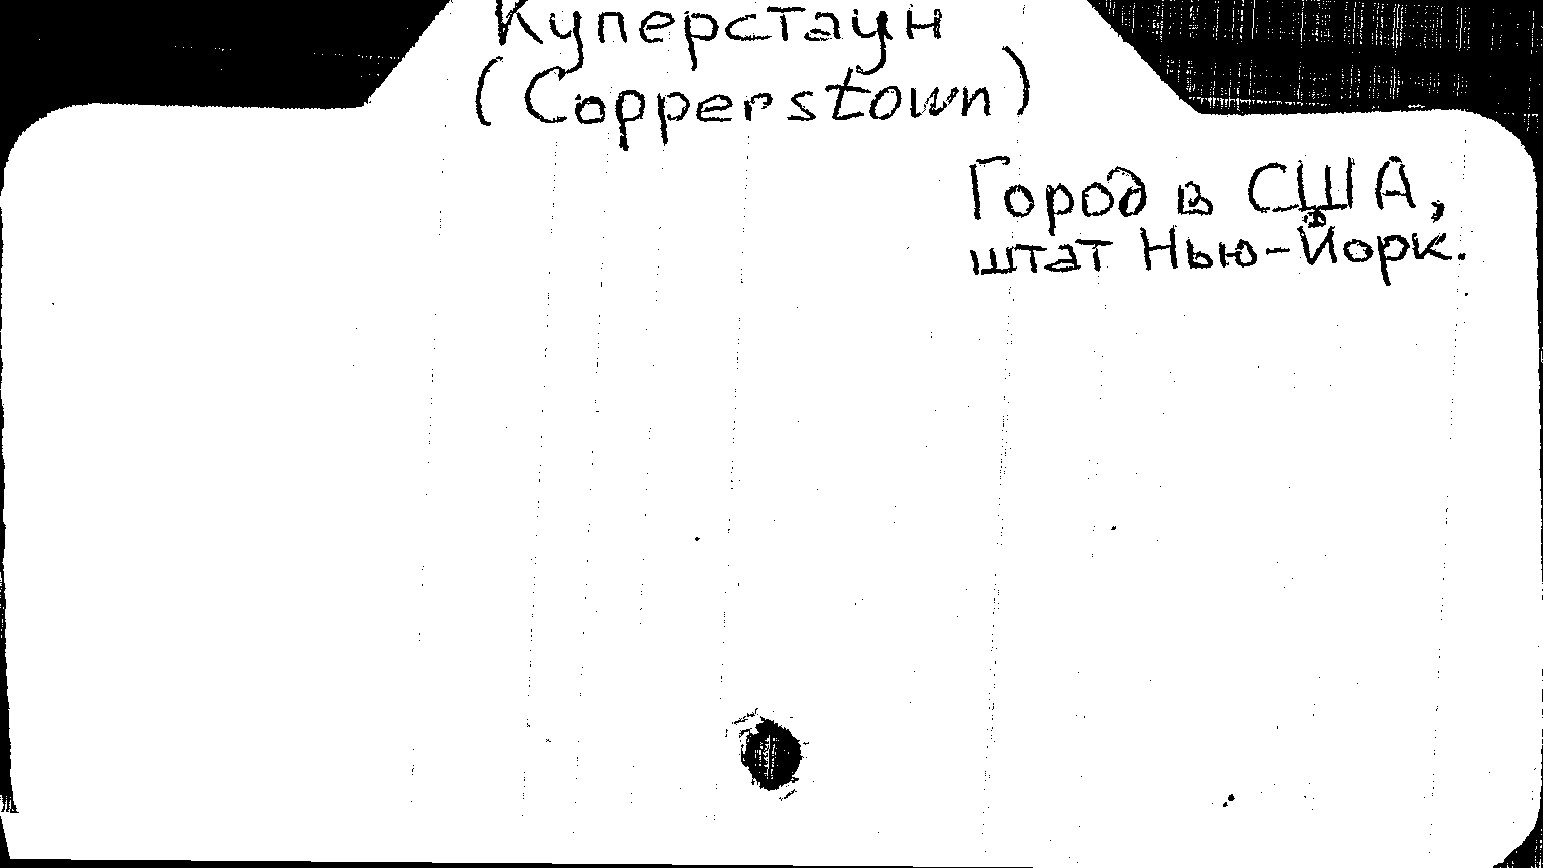 Куперстаун
(Copperstown)
Город в США,
штат Нью-Йорк.